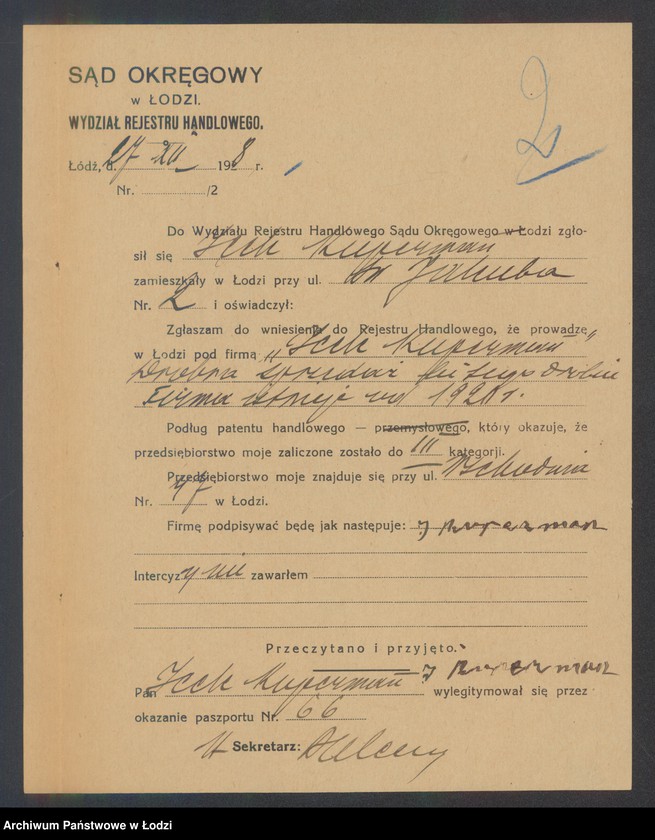 2
SĄD OKRĘGOWY
w ŁODZI.
WYDZIAŁ REJESTRU HANDLOWEGO.
Łódź, d. 17 XII 1928 r.
Nr. /2
Do Wydziału Rejestru Handlowego Sądu Okręgowego w Łodzi zgło-
sił się Icek Kuperman
zamieszkały w Łodzi przy ul. Św Jakuba
Nr. 2 i oświadczył:
Zgłaszam do wniesienia do Rejestru Handlowego, że prowadzę
w Łodzi pod firmą „Icek Kuperman”
Drobna sprzedaż
Firma istnieje od 1920 r.
Podług patentu handlowego — przemysłowego, który okazuje, że
przedsiębiorstwo moje zaliczone zostało do III kategorji.
Przedsiębiorstwo moje znajduje się przy ul. Wschodnia
Nr. 47 w Łodzi.
Firmę podpisywać będę jak następuje: J Kuperman
Intercyzy nie zawarłem
Przeczytano i przyjęto.
J Kuperman
Pan Icek Kuperman wylegitymował się przez
okazanie paszportu Nr. 66
Sekretarz:
Archiwum Państwowe w Łodzi